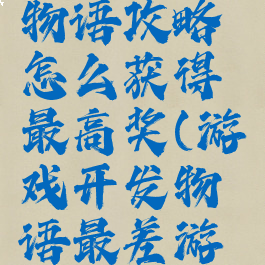 物语攻略
怎么获得
最高奖(游
戏开发物
语最差游